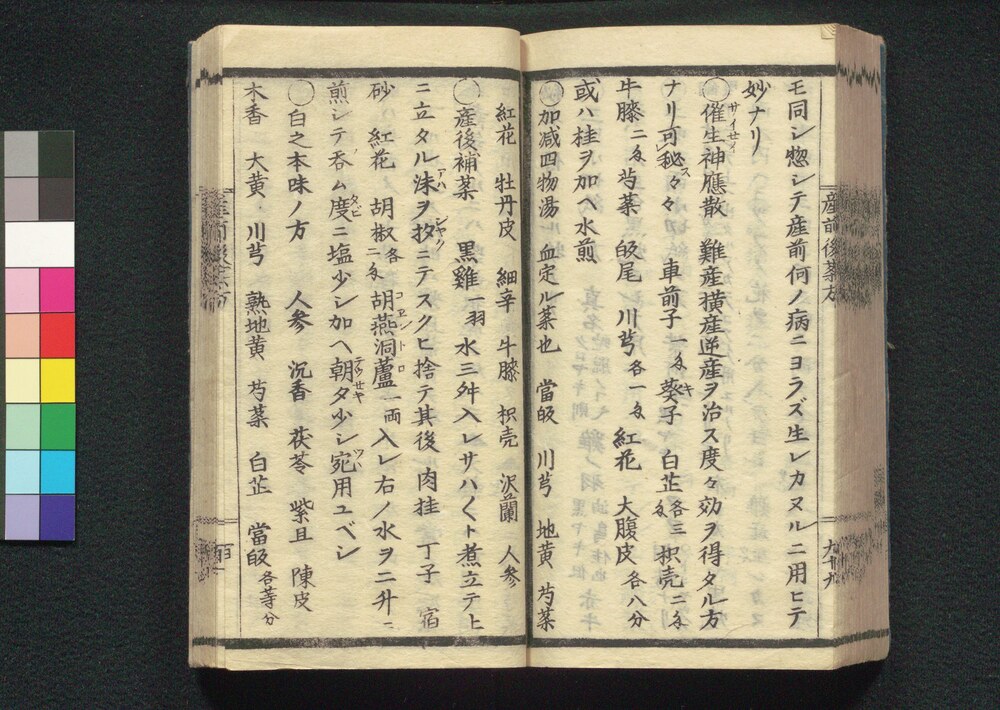 モ同シ惣シテ産前何ノ病ニヨラズ生レカヌルニ用ヒテ
妙ナリ
○催生神應散 難産横産逆産ヲ治ス度々効ヲ得タル方
サイセイ
ナリ可秘々々 車前子一匁葵子 白芷各三匁枳壳二匁
ス キ
牛膝二匁芍薬 皈尾 川芎各一匁紅花 大腹皮各八分
或ハ桂ヲ加ヘ水煎
○加减四物湯 血定ル薬也 當皈 川芎 地黄 芍薬
紅花 牡丹皮 細辛 牛膝 枳壳 沢蘭 人参
○産後補薬 黒雞一羽 水三舛入レサハ〱ト煮立テ上
ニ立タル沫ヲ抄ニテスクヒ捨テ其後 肉桂 丁子 宿
アハ シヤク
砂 紅花 胡椒各二匁胡燕洞蘆一両入レ右ノ水ヲ二升ニ
コヱントロ
煎シテ呑ム度ニ塩少シ加ヘ朝夕少シ宛用ユベシ
タビ テウセキ ツヽ
○白之本味ノ方 人参 沉香 茯苓 紫且 陳皮
木香 大黄 川芎 熟地黄 芍薬 白芷 當皈各等分
産前後薬方
九十九